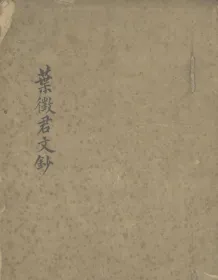 葉徵君文鈔